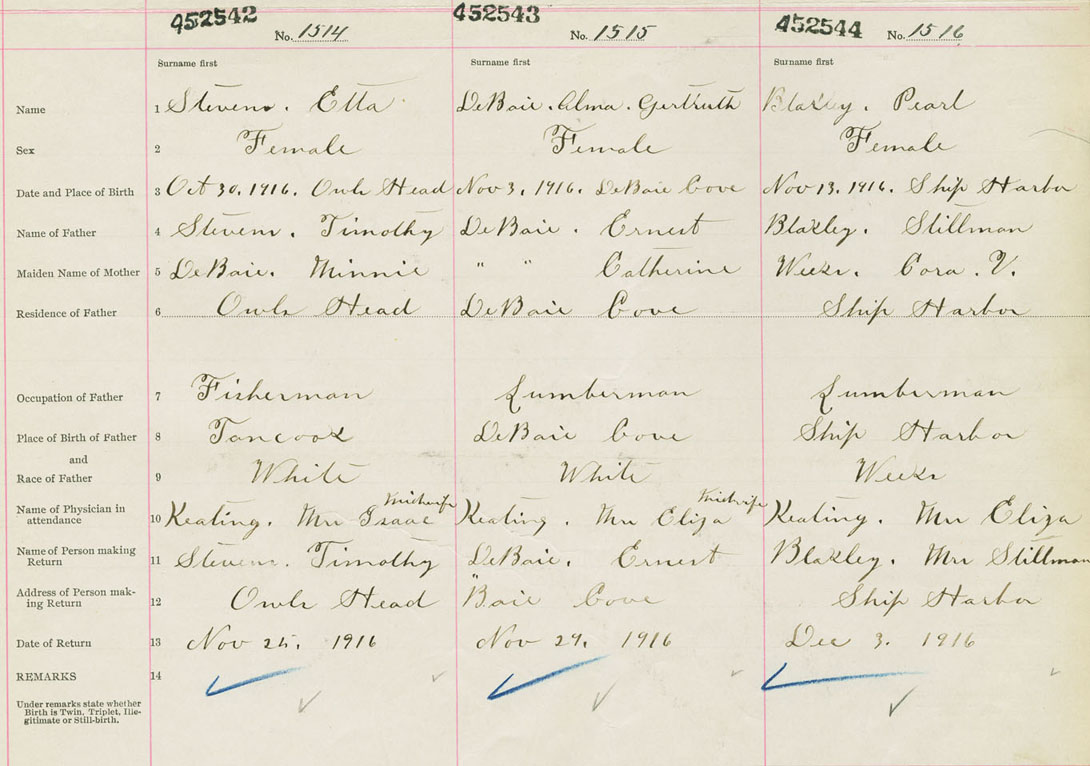 452542 No. 1514 452543 No. 1515 452544 No. 1516
Surname first Surname first Surname first
Name 1 Stevens. Etta DeBaie. Alma. Gertruth Blakley. Pearl
Sex 2 Female Female Female
Date and Place of Birth 3 Oct 30, 1916. Owls Head Nov 3, 1916. DeBaie Cove Nov 13, 1916. Ship Harbor
Name of Father 4 Stevens. Timothy DeBaie. Ernest Blakley. Stillman
Maiden Name of Mother 5 DeBaie. Minnie " " Catherine Weeks. Cora. V.
Residence of Father 6 Owls Head DeBaie Cove Ship Harbor
Occupation of Father 7 Fisherman Lumberman Lumberman
Place of Birth of Father 8 Tancook DeBaie Cove Ship Harbor
and
Race of Father 9 White White Weeks
Midwife Midwife
Name of Physician in attendance 10 Keating. Mrs Isaac Keating. Mrs Eliza Keating. Mrs Eliza
Name of Person making Return 11 Stevens. Timothy DeBaie. Ernest Blakley. Mrs Stillman
Address of Person mak-
ing Return 12 Owls Head " Baie Cove Ship Harbor
Date of Return 13 Nov 25, 1916 Nov 29, 1916 Dec 3, 1916
REMARKS 14
Under remarks state whether
Birth is Twin, Triplet, Ille-
gitimate or Still-birth.